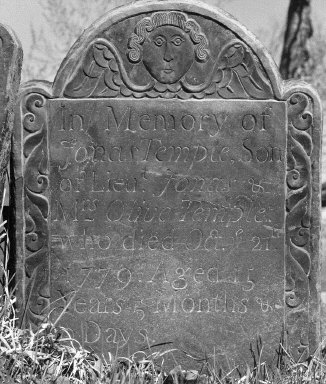 In Memory of
Jonas Temple, Son
of Lieut. Jonas &
Mrs Olive Temple:
who died Oct. 21
1779. Aged 15
Years 5 Months &
Days